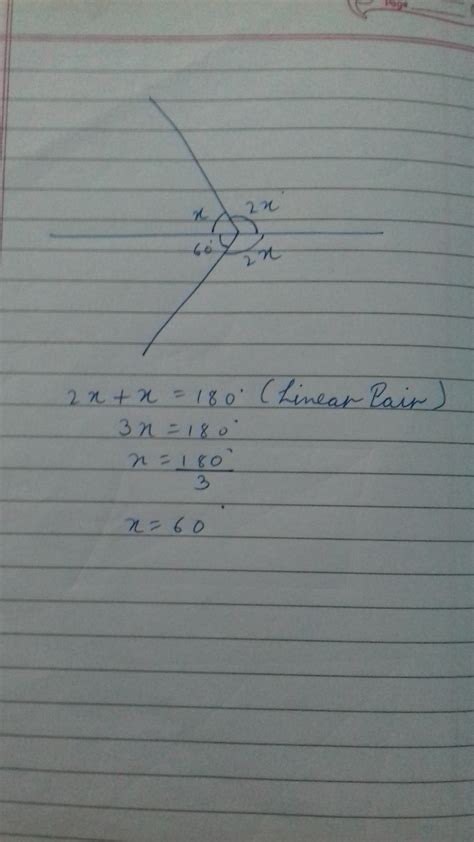 Page
x 2x°
60° 2x
2x + x = 180° (Linear Pair)
3x = 180°
x = 180°
3
x = 60°